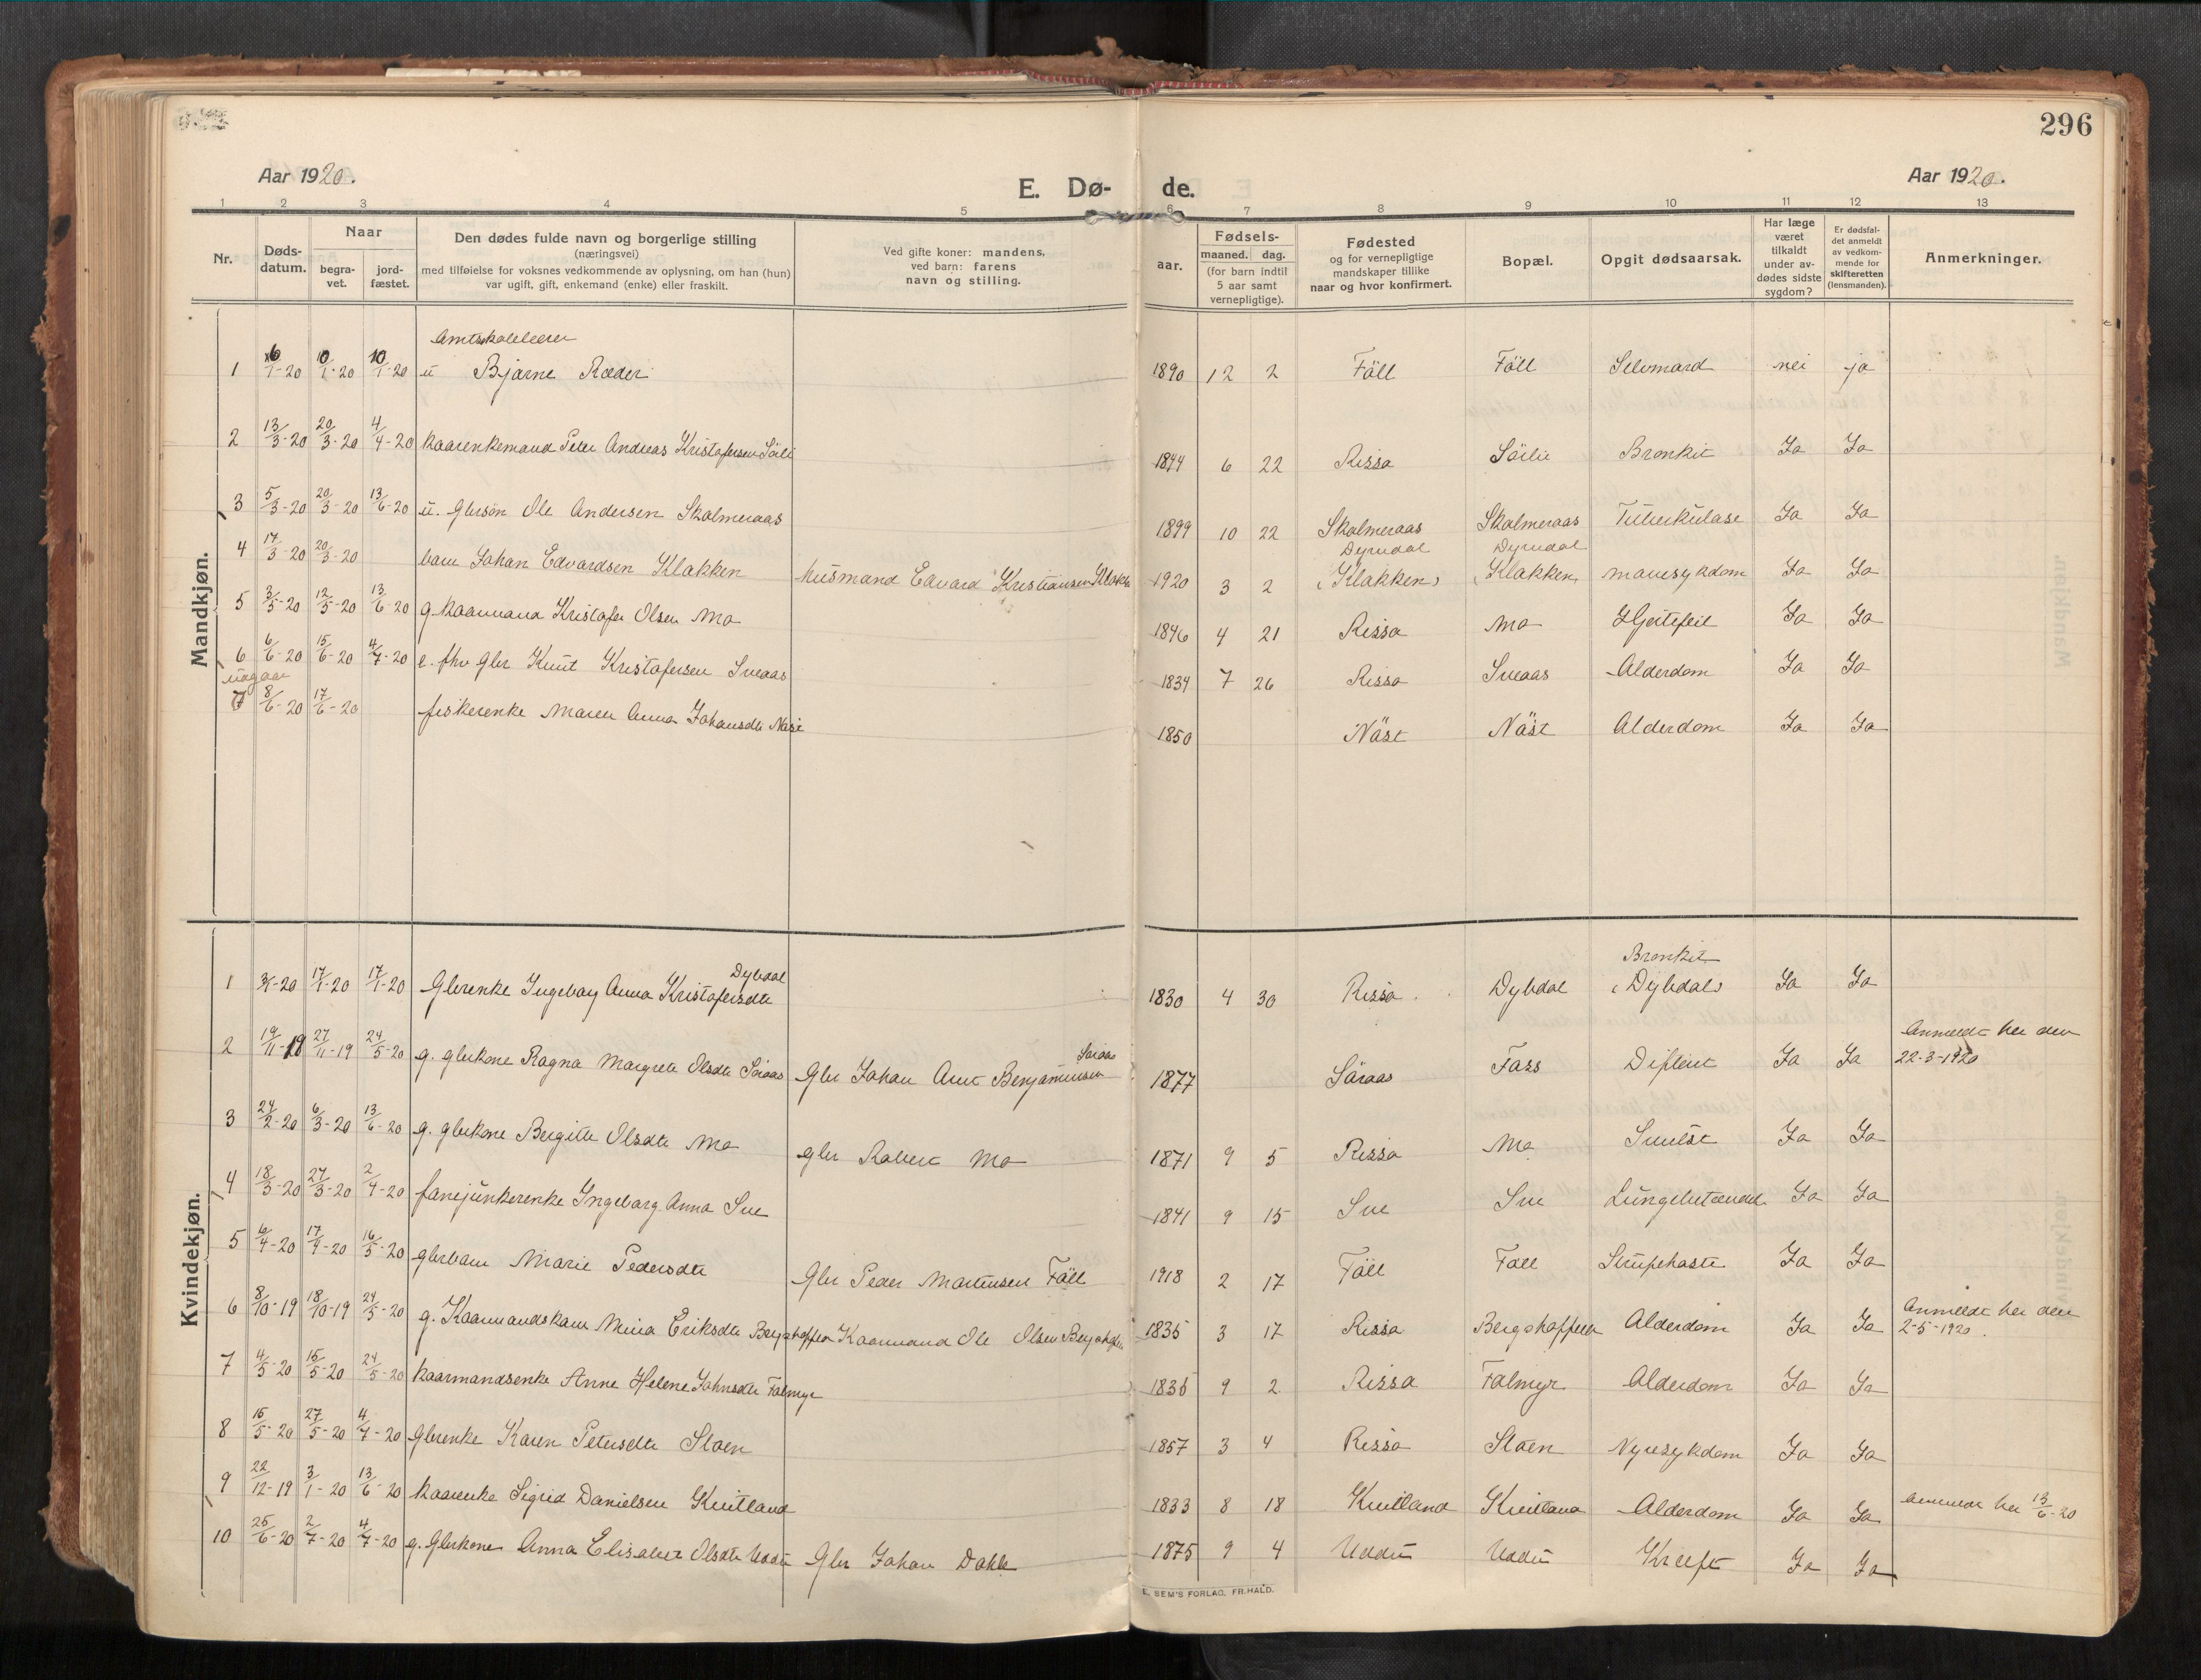 296
Aar 1920.
E. Dø- de.
Aar 1920.
1 2 3 4 5 6 7 8 9 10 11 12 13
Nr.
Døds-
datum.
Naar
begra-
vet.
jord-
fæstet.
Den dødes fulde navn og borgerlige stilling
(næringsvei)
med tilføielse for voksnes vedkommende av oplysning, om han (hun)
var ugift, gift, enkemand (enke) eller fraskilt.
Ved gifte koner: mandens,
ved barn: farens
navn og stilling.
aar.
Fødsels-
maaned. dag.
(for barn indtil
5 aar samt
vernepligtige).
Fødested
og for vernepligtige
mandskaper tillike
naar og hvor konfirmert.
Bopæl.
Opgit dødsaarsak.
Har læge
været
tilkaldt
under av-
dødes sidste
sygdom?
Er dødsfal-
det anmeldt
av vedkom-
mende for
skifteretten
(lensmanden).
Anmerkninger.
Mandkjøn.
Amtskolelærer
1 6/1-20 10/1-20 10/1-20 u Bjarne Ræder 1890 12 2 Fäll Fäll Selvmord nei ja
2 13/3-20 20/3-20 4/4-20 kaarenkemand Peter Andreas Kristofersen Söili 1844 6 22 Rissa Söilie Bronkit Ja Ja
3 5/3-20 20/3-20 13/6-20 u. Glersön Ole Andersen Skolmeraas 1899 10 22 Skolmeraas Skolmeraas Tuberkulose Ja Ja
Dyrudal Dyrudal
4 17/3-20 20/3-20 barn Johan Edvardsen Klakken husmand Edvard Kristiansen Klakken 1920 3 2 (Klakken) (Klakken) mavesykdom Ja Ja
5 3/5-20 12/5-20 13/6-20 g. kaarmand Kristofer Olsen Mo 1846 4 21 Rissa Mo Hjertefeil Ja Ja
6 6/6-20 15/6-20 4/7-20 e. fhv Gbr Knut Kristofersen Sneaas 1834 7 26 Rissa Sneaas Alderdom Ja Ja
utgaar
7 8/6-20 17/6-20 fiskerenke Maren Anna Johansdtr Näst 1850 Näst Näst Alderdom Ja Ja
Kvindekjøn.
Dybdal Bronkit
1 3/1-20 17/1-20 17/1-20 Gbrenke Ingeborg Anna Kristofersdtr 1830 4 30 Rissa Dybdal (Dybdal) Ja Ja
Söraas Anmeldt her den
2 19/11-19 27/11-19 24/5-20 g. gbrkone Ragna Margrete Olsdtr Söraas Gbr Johan Arnt Benjaminsen 1877 Söraas Fass Difterit Ja Ja 22-3-1920
3 24/2-20 6/3-20 13/6-20 g. gbrkone Bergitte Olsdtr Mo gbr Robert Mo 1871 9 5 Rissa Mo Ja Ja
4 18/3-20 27/3-20 2/4-20 fanejunkerenke Ingeborg Anna Sve 1841 9 15 Sve Sve Lungebetændel Ja Ja
5 6/4-20 17/4-20 16/5-20 gbrbarn Marie Pedersdtr Gbr Peder Martinsen Fäll 1918 2 17 Fäll Fäll Strupehoste Ja Ja
Anmeldt her den
6 8/10-19 18/10-19 24/5-20 g. Kaarmandskone Mina Eriksdtr Bergshoffen Kaarmand Ole Olsen Bergshoffen 1835 3 17 Rissa Bergshoffen Alderdom Ja Ja 2-5-1920.
7 4/5-20 15/5-20 24/5-20 kaarmandsenke Anne Helene Johnsdtr Falmyr 1836 9 2 Rissa Falmyr Alderdom Ja Ja
8 15/5-20 27/5-20 4/7-20 Gbrenke Karen Petersdtr Sloen 1857 3 4 Rissa Sloen Nyresykdom Ja Ja
9 22/12-19 3/1-20 13/6-20 kaarenke Sigrid Danielsen Kvitland 1833 8 18 Kvitland Kvitland Alderdom Ja Ja Anmeldt her 13/6-20
10 25/6-20 2/7-20 4/7-20 g. Gbrkone Anna Elisabet Olsdtr Uddu Gbr Johan Dahle 1875 9 4 Uddu Uddu Kræft Ja Ja
E. SEM'S FORLAG, FR.HALD.